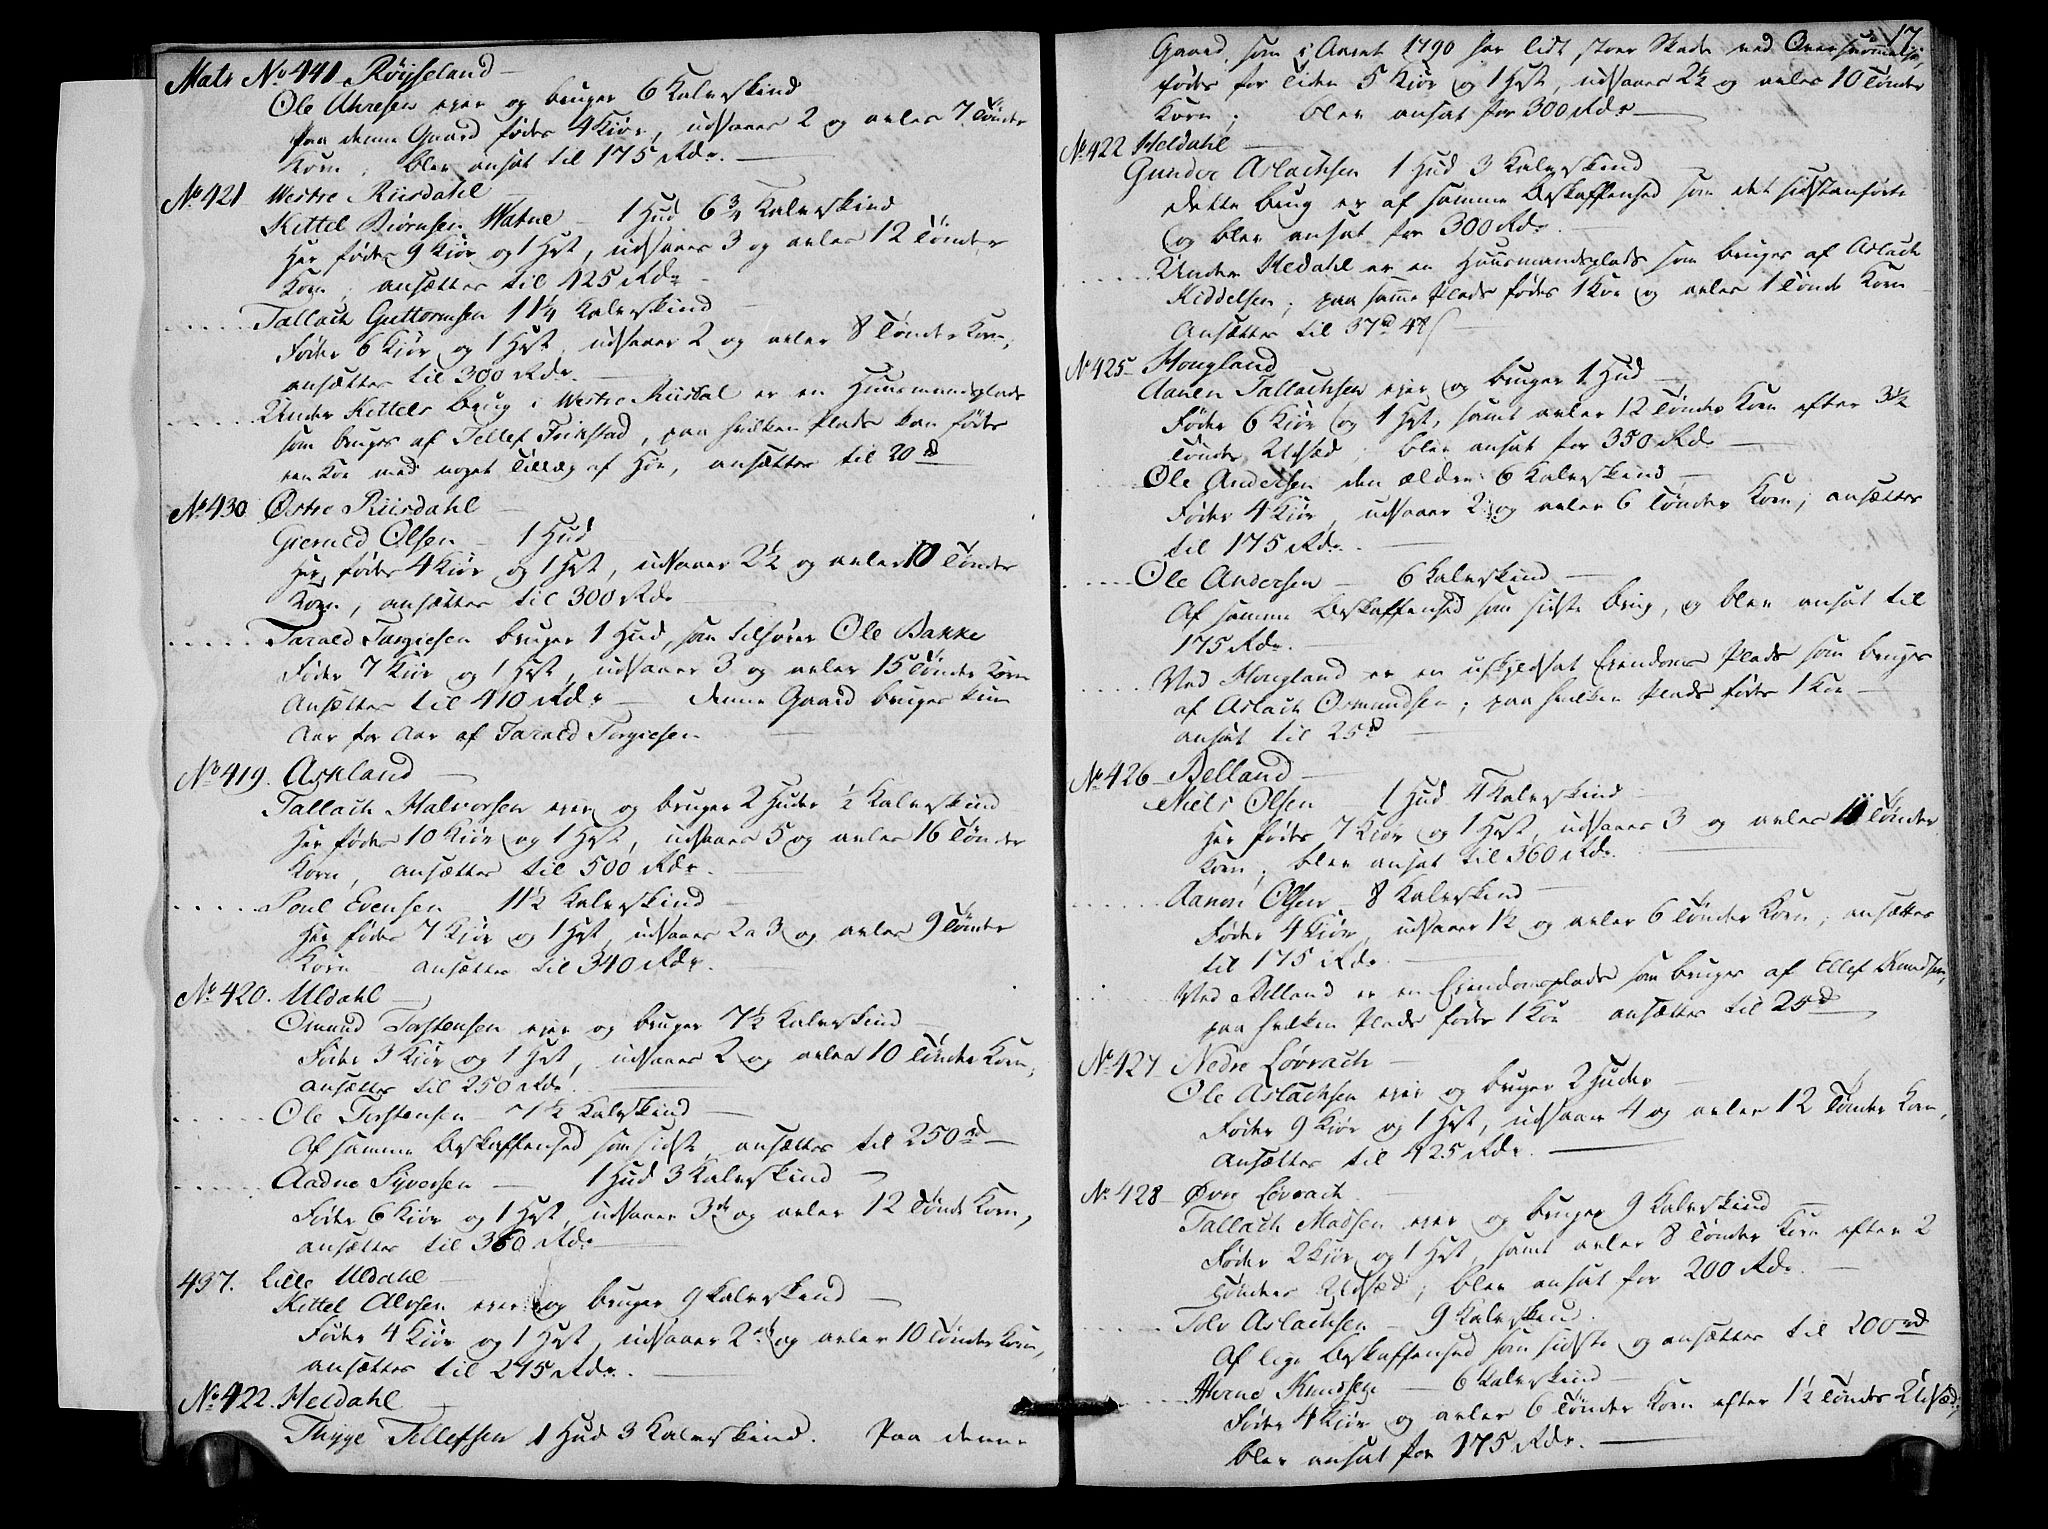 Matr No 441. Røysseland
Ole Uhresen ejer og bruger 6 Kalvskind
Paa denne Gaard fødes 4 Kiør, udsaaes 2 og avles 7 Tønder
Korn; blev ansat til 175 Rdr.
No 421 Westre Riisdahl
Kittel Biørnsen Watne – 1 Hud 6 3/4 Kalvskind
Her fødes 9 Kiør og 1 Hest, udsaaes 3 og avles 12 Tønder
Korn; ansættes til 425 Rdr
Tallach Guttormsen 11 1/4 Kalvskind
Føder 6 Kiør og 1 Hest, udsaaer 2 og avler 8 Tønder Korn,
ansættes til 300 Rdr.
Under Kittels brug i Westre Riisdal er en Huusmandsplads
som bruges af Tellef Frikstad, paa hvilken Plads kan fødes
een Koe med noget Tillæg af Høe, ansættes til 20 rd
No 430 Østre Riisdahl
Gieruld Olsen – 1 Hud
Her fødes 4 Kiør og 1 Hest, udsaaer 2 1/2 og avles 10 Tønder
Korn, ansættes til 300 Rdr
Tarald Torgiesen bruger 1 Hud, som tilhører Ole Bakke
Føder 7 Kiør og 1 Hest, udsaaer 3 og avler 15 Tønder Korn
Ansættes til 410 Rdr – denne Gaard bruges kun
Aar for Aar af Tarald Torgiesen
No 419. Askland
Tallach Halvorsen ejer og bruger 2 Huder 1/2 Kalvskind
Her fødes 10 Kiør og 1 Hest, udsaaes 5 og avles 16 Tønder
Korn, ansættes til 500 Rdr.
Poul Evensen – 11 1/2 Kalvskind
Her fødes 7 Kiør og 1 Hest, udsaaes 2 a 3 og avles 9 Tønder
Korn – ansættes til 340 Rdr.
No 420. Uldahl
Omund Torstensen ejer og bruger 7 1/2 Kalvskind
Føder 3 Kiør og 1 Hest, udsaaer 2 og avler 10 Tønder Korn,
ansættes til 250 Rdr.
Ole Torstensen – 7 1/2 Kalvskind
Af samme Beskaffenhed som sidste, ansættes til 250 rd
Aadne Syversen – 1 Hud 3 Kalvskind
Føder 6 Kiør og 1 Hest, udsaaer 3 og avler 12 Tønde Korn,
ansættes til 360 Rdr
437. Lille Uldahl
Kittel Alvsen ejer og bruger 9 Kalvskind
Føder 4 Kiør og 1 Hest, udsaaer 2 og avler 10 Tønder Korn,
ansættes til 275 Rdr.
No 422. Heldahl
Thyge Tellefsen 1 Hud 3 Kalvskind. Paa denne
17
Gaard, som i Aaret 1790 har lidt stoer Skade ved Oversvømmelse,
fødes for Tiden 5 Kiør og 1 Hest, udsaaes 2 1/2 og avles 10 Tønder
Korn; blev ansat for 300 Rdr
No 422 Heldahl
Gunder Aslachsen 1 Hud 3 Kalvskind
dette brug er af samme Beskaffenhed som det sidstanførte
og blev ansat for 300 Rdr.
Under Heldahl er en Huusmandsplads som bruges af Aslach
Kiddelsen; paa samme Plads fødes 1 Koe og avles 1 Tønde Korn
Ansættes til 37 rd 48 s
No 425 Hougland
Aanen Tallachsen ejer og bruger 1 Hud
Føder 6 Kiør og 1 Hest, samt avler 12 Tønder Korn efter 3 1/2
Tønder Udsæd; blev ansat for 350 Rdr
Ole Andersen den ældre 6 Kalvskind
Føder 4 Kiør, udsaaer 2 og avler 6 Tønder Korn; ansættes
til 175 Rdr.
Ole Andersen – 6 Kalvskind
Af samme Beskaffenhed som sidste brug, og blev ansat til
175 Rdr.
Ved Hougland er en uskyldsat Ejendoms Plads som bruges
af Aslach Osmundsen; paa hvilken Plads fødes 1 Koe
ansat til 25 rd
No 426 Belland
Niels Olsen 1 Hud 4 Kalvskind
Her fødes 7 Kiør og 1 Hest, udsaaes 3 og avles Tønder
Korn; blev ansat til 360 Rdr.
Aanon Olsen – 8 Kalvskind
Føder 4 Kiør, udsaaer 1 1/2 og avler 6 Tønder Korn; ansættes
til 175 Rdr.
Ved Belland er en Ejendomsplads som bruges af Ellef Knudsen,
paa hvilken Plads fødes 1 Koe ansættes til 25 rd
No 427 Nedre Løvrach
Ole Aslachsen ejer og bruger 2 Huder
Føder 9 Kiør og 1 Hest, udsaaer 4 og avler 12 Tønder Korn,
Ansættes til 425 Rdr.
No 428 Øvre Løvrach
Tallach Madsen ejer og bruger 9 Kalvskind
Føder 2 Kiør og 1 Hest, samt avler 8 Tønder Korn efter 2
Tønders Udsæd; blev ansat for 200 Rdr.
Tolv Aslachsen – 9 Kalvskind.
Af lige Beskaffenhed som sidste og ansættes til 200 rd
Knudsen – 6 Kalvskind
Føder 4 Kiør og avler 6 Tønder Korn efter 1 1/2 Tønders Udsæd;
blev ansat for 175 Rdr.